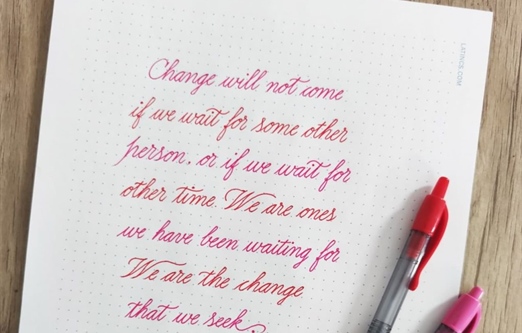 Change will not come
if we wait for some other
person, or if we wait for
other time. We are ones
we have been waiting for
We are the change
that we seek
LATRICS.COM